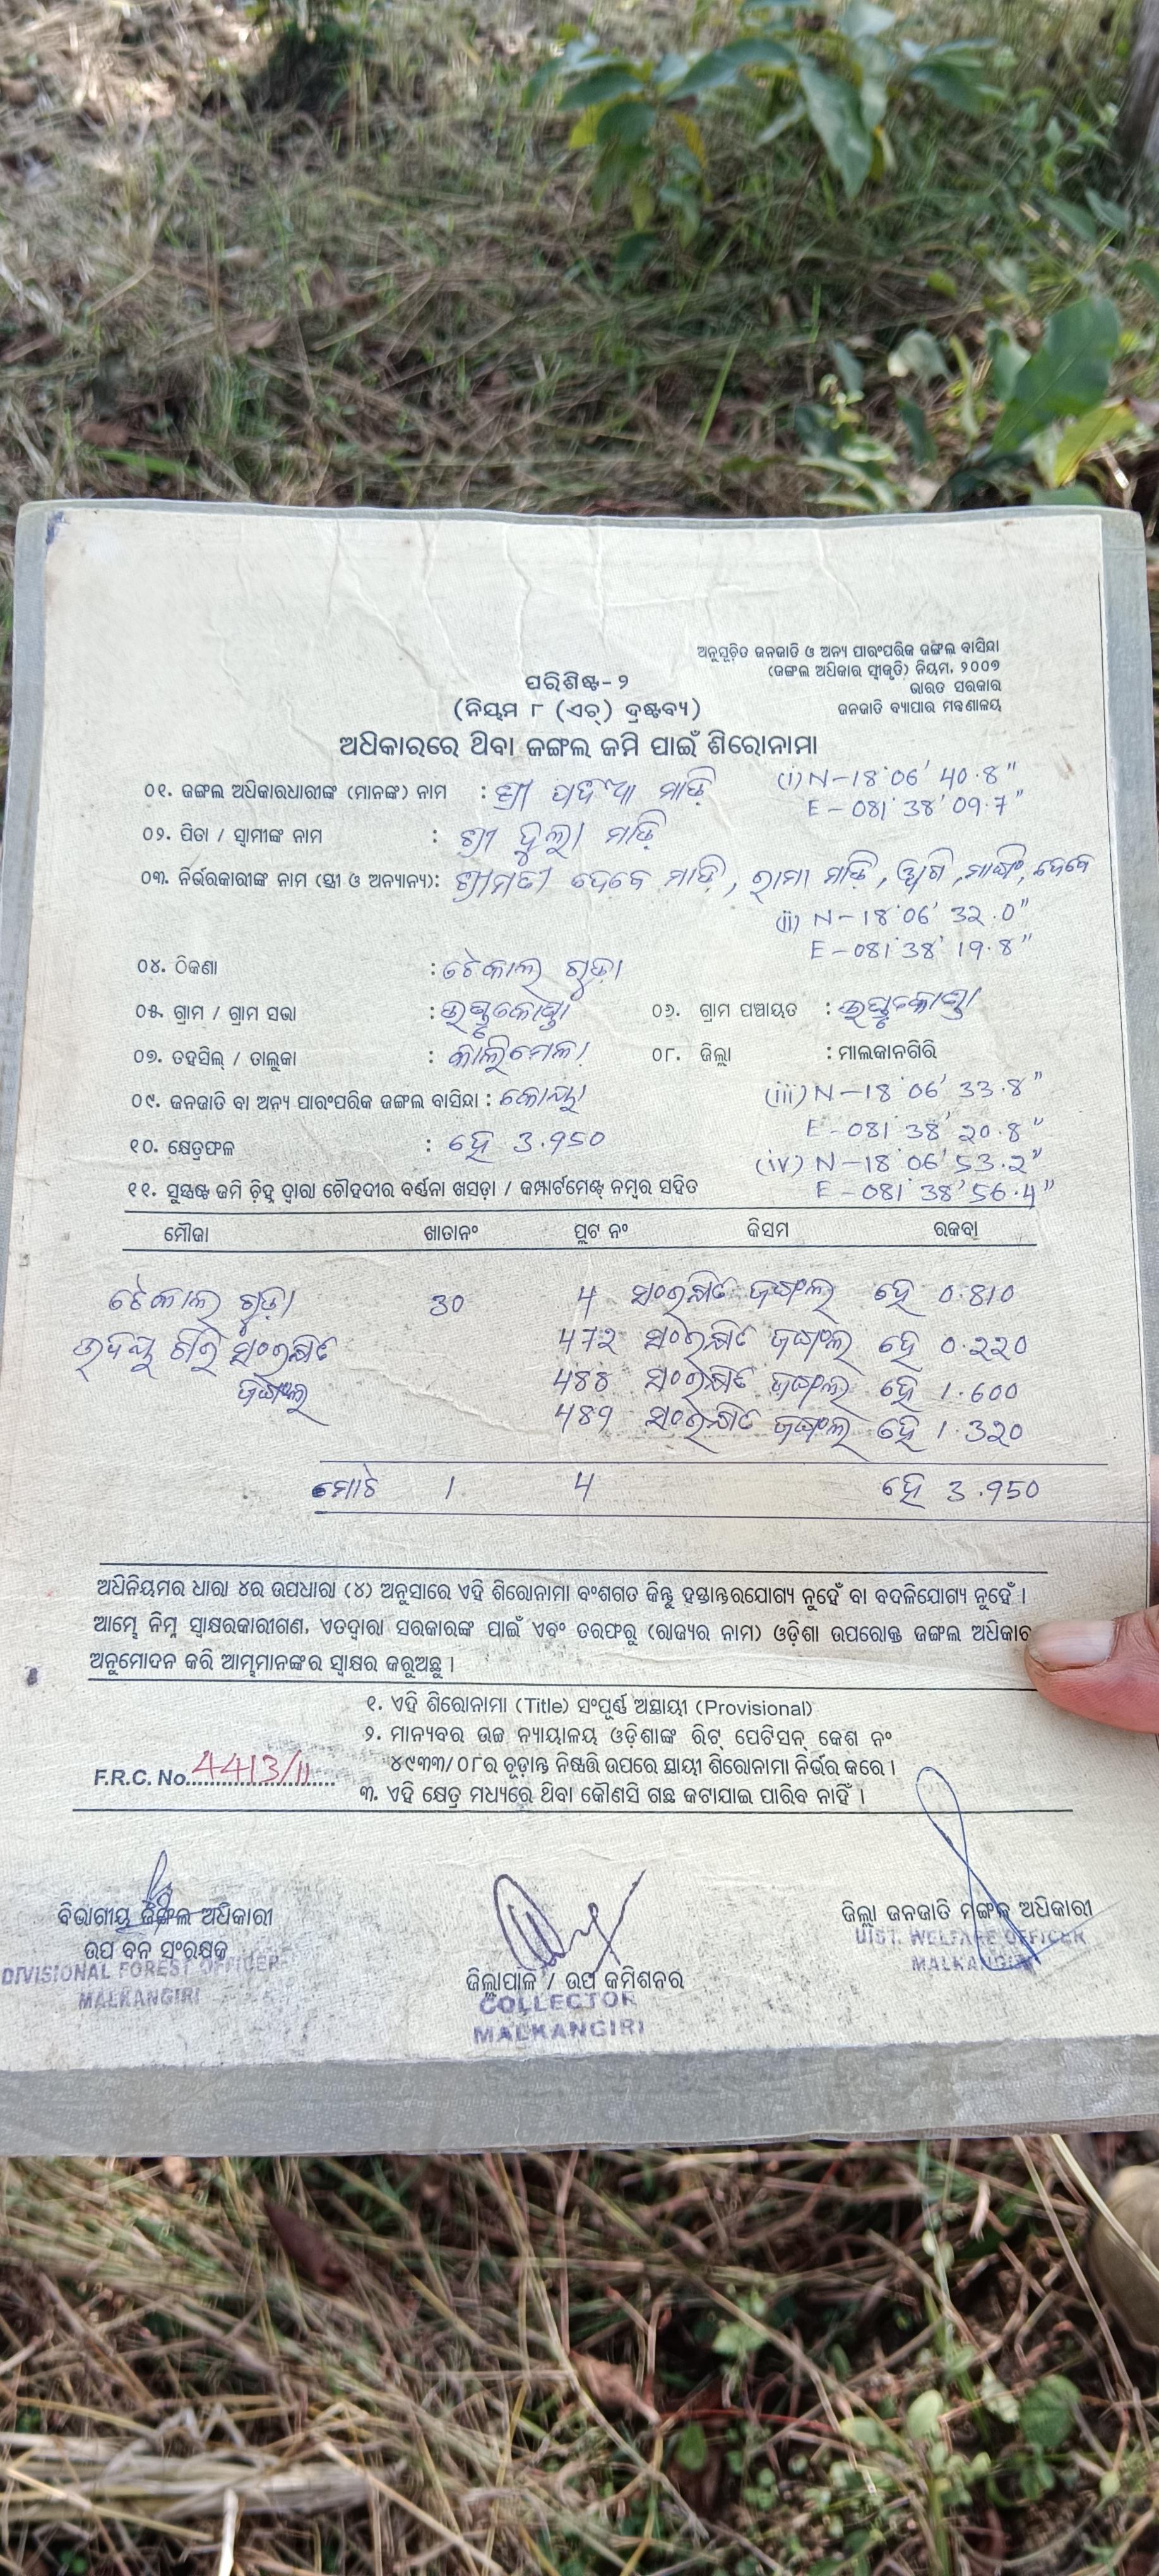 ଅନୁସୂଚିତ ଜନଜାତି ଓ ଅନ୍ୟ ପାରଂପରିକ ଜଙ୍ଗଲ ବାସିନ୍ଦା
(ଜଙ୍ଗଲ ଅଧିକାର ସ୍ୱୀକୃତି) ନିୟମ, ୨୦୦୭
ଭାରତ ସରକାର
ଜନଜାତି ବ୍ୟାପାର ମନ୍ତ୍ରଣାଳୟ
ପରିଶିଷ୍ଟ-୨
(ନିୟମ ୮ (ଏଚ୍) ଦ୍ରଷ୍ଟବ୍ୟ)
ଅଧିକାରରେ ଥିବା ଜଙ୍ଗଲ ଜମି ପାଇଁ ଶିରୋନାମା
୦୧. ଜଙ୍ଗଲ ଅଧିକାରଧାରୀଙ୍କ (ମାନଙ୍କ) ନାମ : ଶ୍ରୀ ମାଡ଼ି (i) N-18°06' 40.8"
E-081°38' 09.7"
୦୨. ପିତା / ସ୍ୱାମୀଙ୍କ ନାମ : ଶ୍ରୀ ଦୁଲା ମାଡ଼ି
୦୩. ନିର୍ଭରକାରୀଙ୍କ ନାମ (ସ୍ତ୍ରୀ ଓ ଅନ୍ୟାନ୍ୟ): ଶ୍ରୀମତୀ ଦେବେ ମାଡ଼ି, ରାମା ମାଡ଼ି, ଦେବେ
(ii) N-18°06' 32.0"
E-081°38' 19.8"
୦୪. ଠିକଣା : ଟେକାଲ ଗୁଡ଼ା
୦୫. ଗ୍ରାମ / ଗ୍ରାମ ସଭା : ୦୬. ଗ୍ରାମ ପଞ୍ଚାୟତ :
୦୭. ତହସିଲ୍ / ତାଲୁକା : କାଲିମେଳା ୦୮. ଜିଲ୍ଲା : ମାଲକାନଗିରି
୦୯. ଜନଜାତି ବା ଅନ୍ୟ ପାରଂପରିକ ଜଙ୍ଗଲ ବାସିନ୍ଦା : କୋୟା (iii) N-18°06' 33.8"
E-081°38' 20.8"
୧୦. କ୍ଷେତ୍ରଫଳ : ହେ 3.950 (iv) N-18°06' 53.2"
୧୧. ସୁସ୍ପଷ୍ଟ ଜମି ଚିହ୍ନ ଦ୍ୱାରା ଚୌହଦୀର ବର୍ଣ୍ଣନା ଖସଡ଼ା / କମ୍ପାର୍ଟମେଣ୍ଟ୍ ନମ୍ବର ସହିତ E-081°38' 56.4"
ମୌଜା ଖାତାନଂ ପ୍ଲଟ ନଂ କିସମ ରକବା
ଟେକାଲ ଗୁଡ଼ା 30 4 ସଂରକ୍ଷିତ ଜଙ୍ଗଲ ହେ 0.810
ଉଦୟ ଗିରି ସଂରକ୍ଷିତ 472 ସଂରକ୍ଷିତ ଜଙ୍ଗଲ ହେ 0.220
ଜଙ୍ଗଲ 488 ସଂରକ୍ଷିତ ଜଙ୍ଗଲ ହେ 1.600
489 ସଂରକ୍ଷିତ ଜଙ୍ଗଲ ହେ 1.320
ମୋଟ 1 4 ହେ 3.950
ଅଧିନିୟମର ଧାରା ୪ର ଉପଧାରା (୪) ଅନୁସାରେ ଏହି ଶିରୋନାମା ବଂଶଗତ କିନ୍ତୁ ହସ୍ତାନ୍ତରଯୋଗ୍ୟ ନୁହେଁ ବା ବଦଳିଯୋଗ୍ୟ ନୁହେଁ ।
ଆମ୍ଭେ ନିମ୍ନ ସ୍ୱାକ୍ଷରକାରୀଗଣ, ଏତଦ୍ୱାରା ସରକାରଙ୍କ ପାଇଁ ଏବଂ ତରଫରୁ (ରାଜ୍ୟର ନାମ) ଓଡ଼ିଶା ଉପରୋକ୍ତ ଜଙ୍ଗଲ ଅଧିକାର
ଅନୁମୋଦନ କରି ଆମ୍ଭମାନଙ୍କର ସ୍ୱାକ୍ଷର କରୁଅଛୁ ।
୧. ଏହି ଶିରୋନାମା (Title) ସଂପୂର୍ଣ୍ଣ ଅସ୍ଥାୟୀ (Provisional)
୨. ମାନ୍ୟବର ଉଚ୍ଚ ନ୍ୟାୟାଳୟ ଓଡ଼ିଶାଙ୍କ ରିଟ୍ ପେଟିସନ୍ କେଶ ନଂ
୪୯୩୩/୦୮ର ଚୂଡ଼ାନ୍ତ ନିଷ୍ପତ୍ତି ଉପରେ ସ୍ଥାୟୀ ଶିରୋନାମା ନିର୍ଭର କରେ ।
F.R.C. No. 4413/11
୩. ଏହି କ୍ଷେତ୍ର ମଧ୍ୟରେ ଥିବା କୌଣସି ଗଛ କଟାଯାଇ ପାରିବ ନାହିଁ ।
ବିଭାଗୀୟ ଜଙ୍ଗଲ ଅଧିକାରୀ
ଉପ ବନ ସଂରକ୍ଷକ
DIVISIONAL FOREST OFFICER
MALKANGIRI
ଜିଲ୍ଲାପାଳ / ଉପ କମିଶନର
COLLECTOR
MALKANGIRI
ଜିଲ୍ଲା ଜନଜାତି ମଙ୍ଗଳ ଅଧିକାରୀ
DIST. WELFARE OFFICER
MALKANGIRI